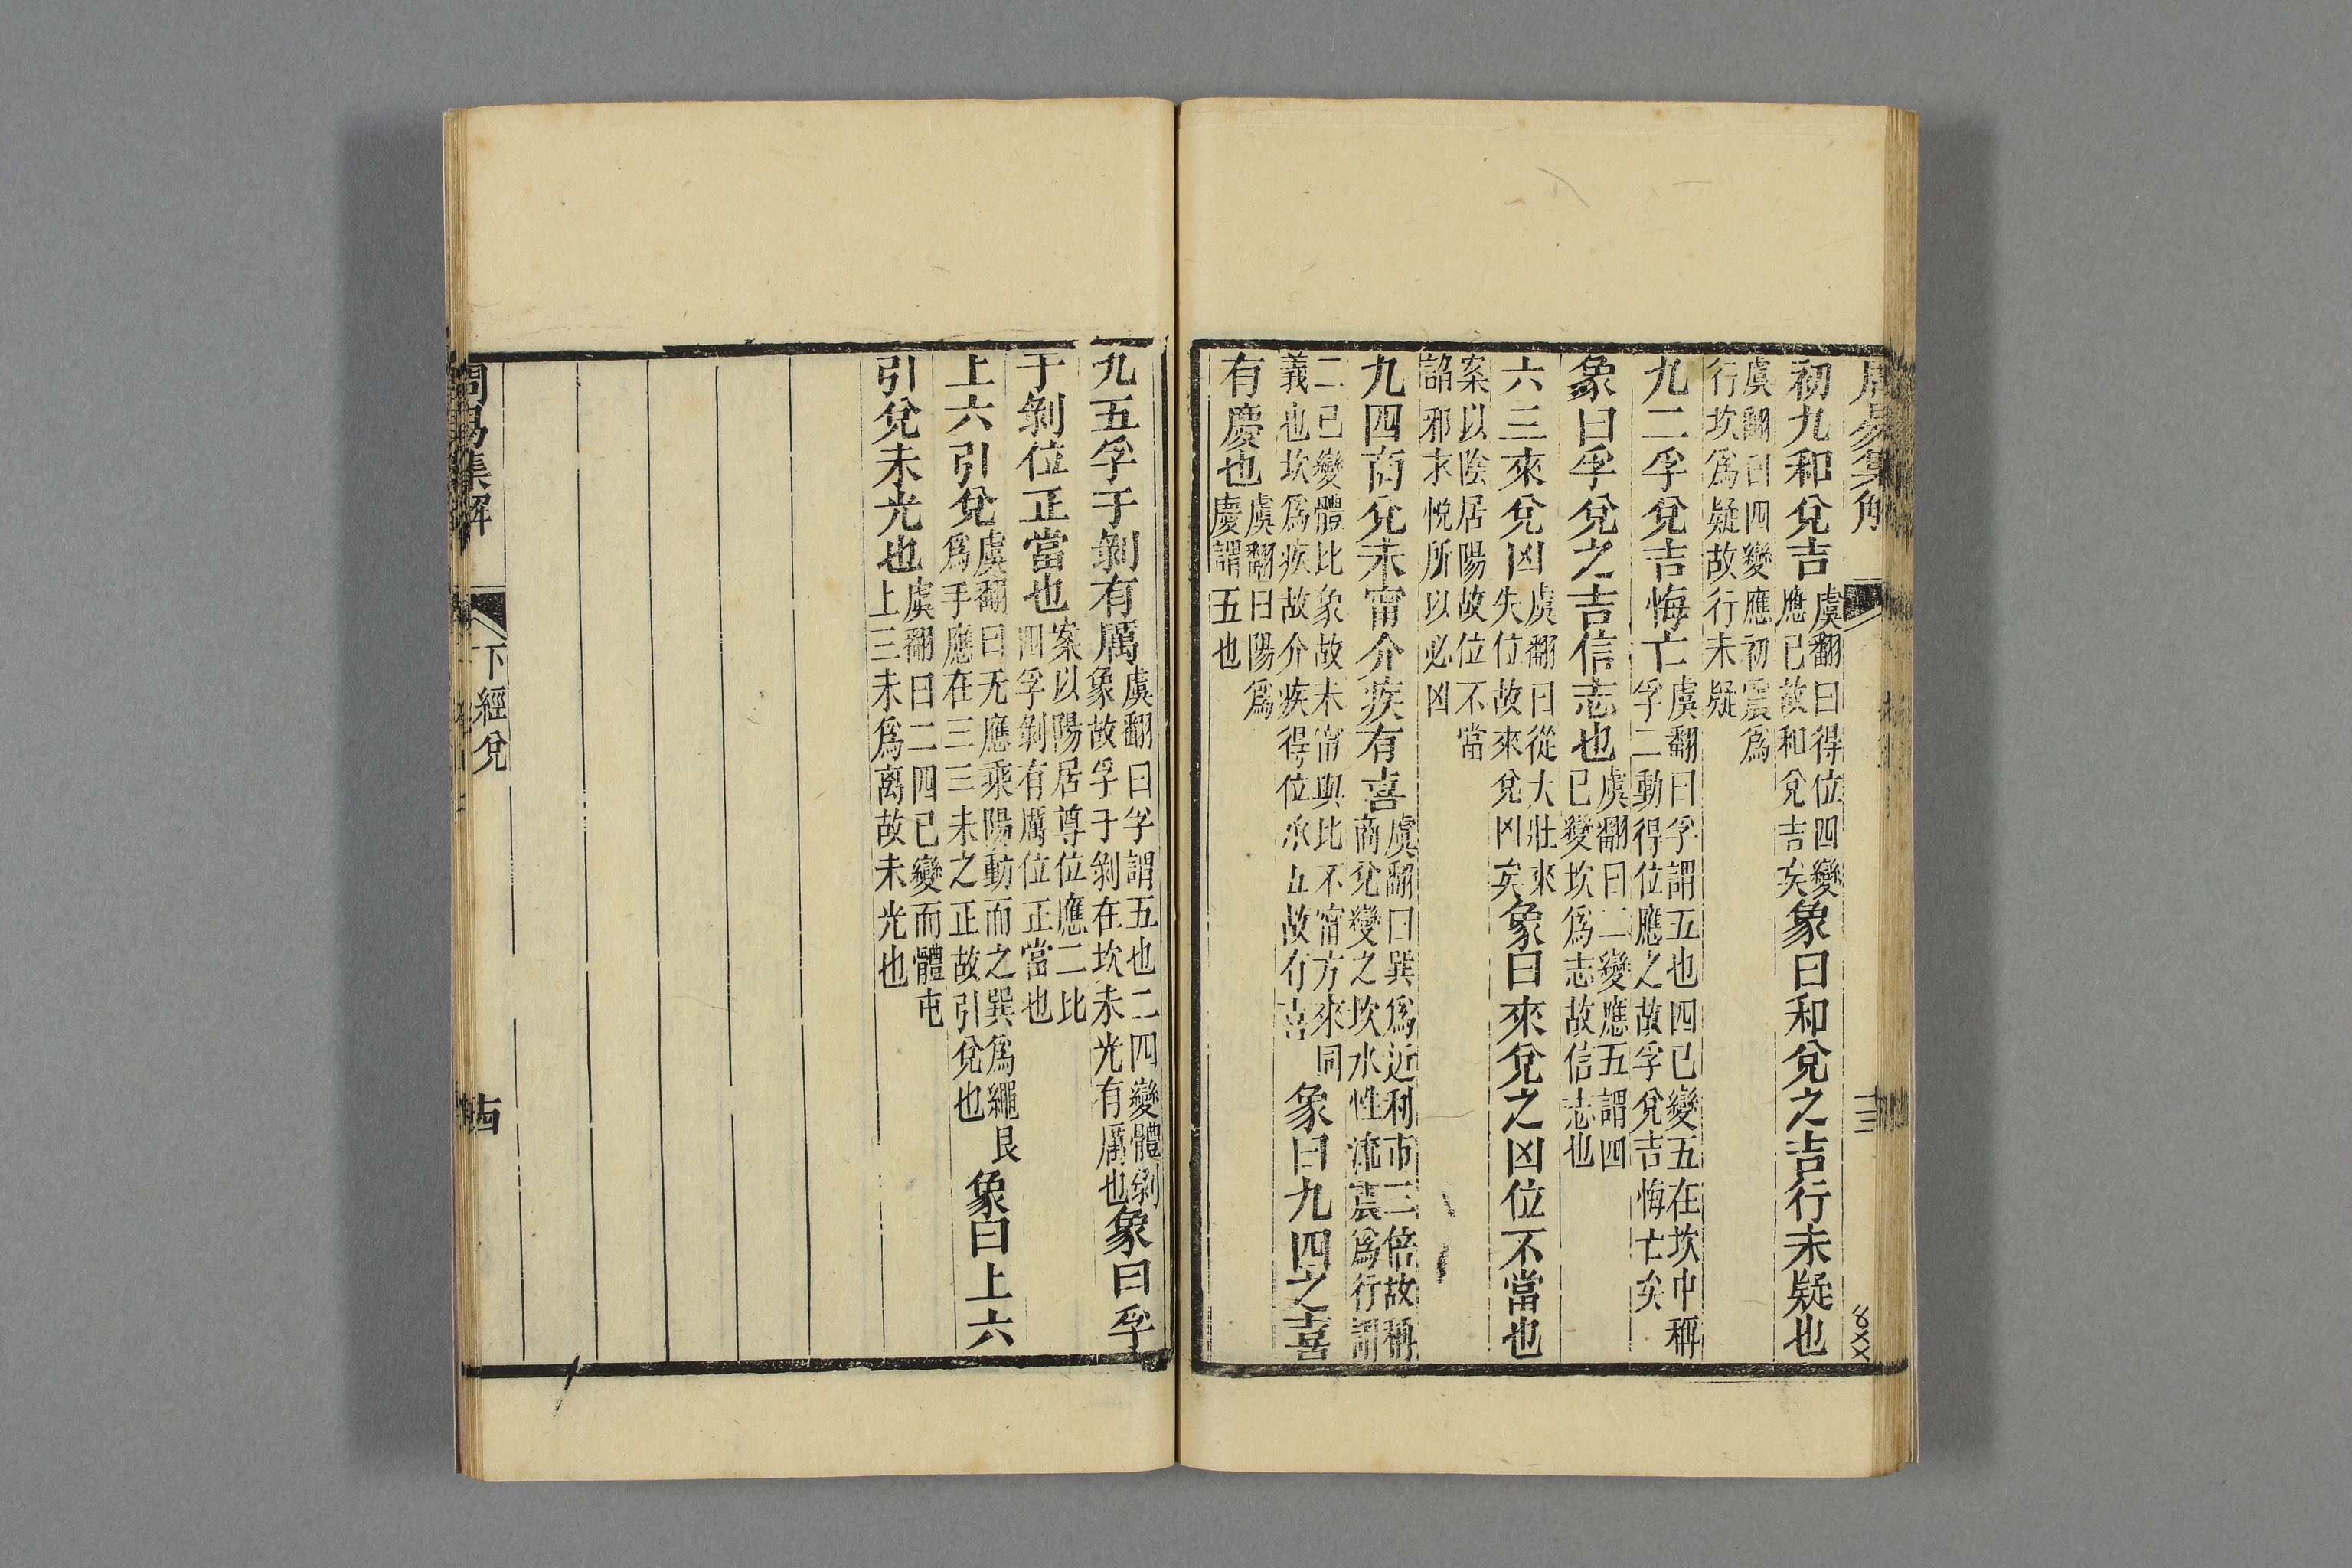 周易集解
十三
初九和兌吉虞翻曰得位四變應已故和兌吉矣象曰和兌之吉行未疑也
虞翻曰四變應初震爲行坎爲疑故行未疑
九二孚兌吉悔亡虞翻曰孚謂五也四已變五在坎中稱孚二動得位應之故孚兌吉悔亡矣
象曰孚兌之吉信志也虞翻曰二變應五謂四已變坎爲志故信志也
六三來兌凶虞翻曰從大壯來失位故來兌凶矣象曰來兌之凶位不當也
案以陰居陽故位不當諂邪求悅所以必凶
九四商兌未甯介疾有喜虞翻曰巽爲近利市三倍故稱商兌變之坎水性流震爲行謂
二已變體比象故未甯與比不甯方來同義也坎爲疾故介疾得位承五故有喜象曰九四之喜
有慶也虞翻曰陽爲慶謂五也
九五孚于剝有厲虞翻曰孚謂五也二四變體剝象故孚于剝在坎未光有厲也象曰孚
于剝位正當也案以陽居尊位應二比四孚剝有厲位正當也
上六引兌虞翻曰无應乘陽動而之巽爲繩艮爲手應在三三未之正故引兌也象曰上六
引兌未光也虞翻曰二四已變而體屯上三未爲离故未光也
周易集解
下經兌
十四